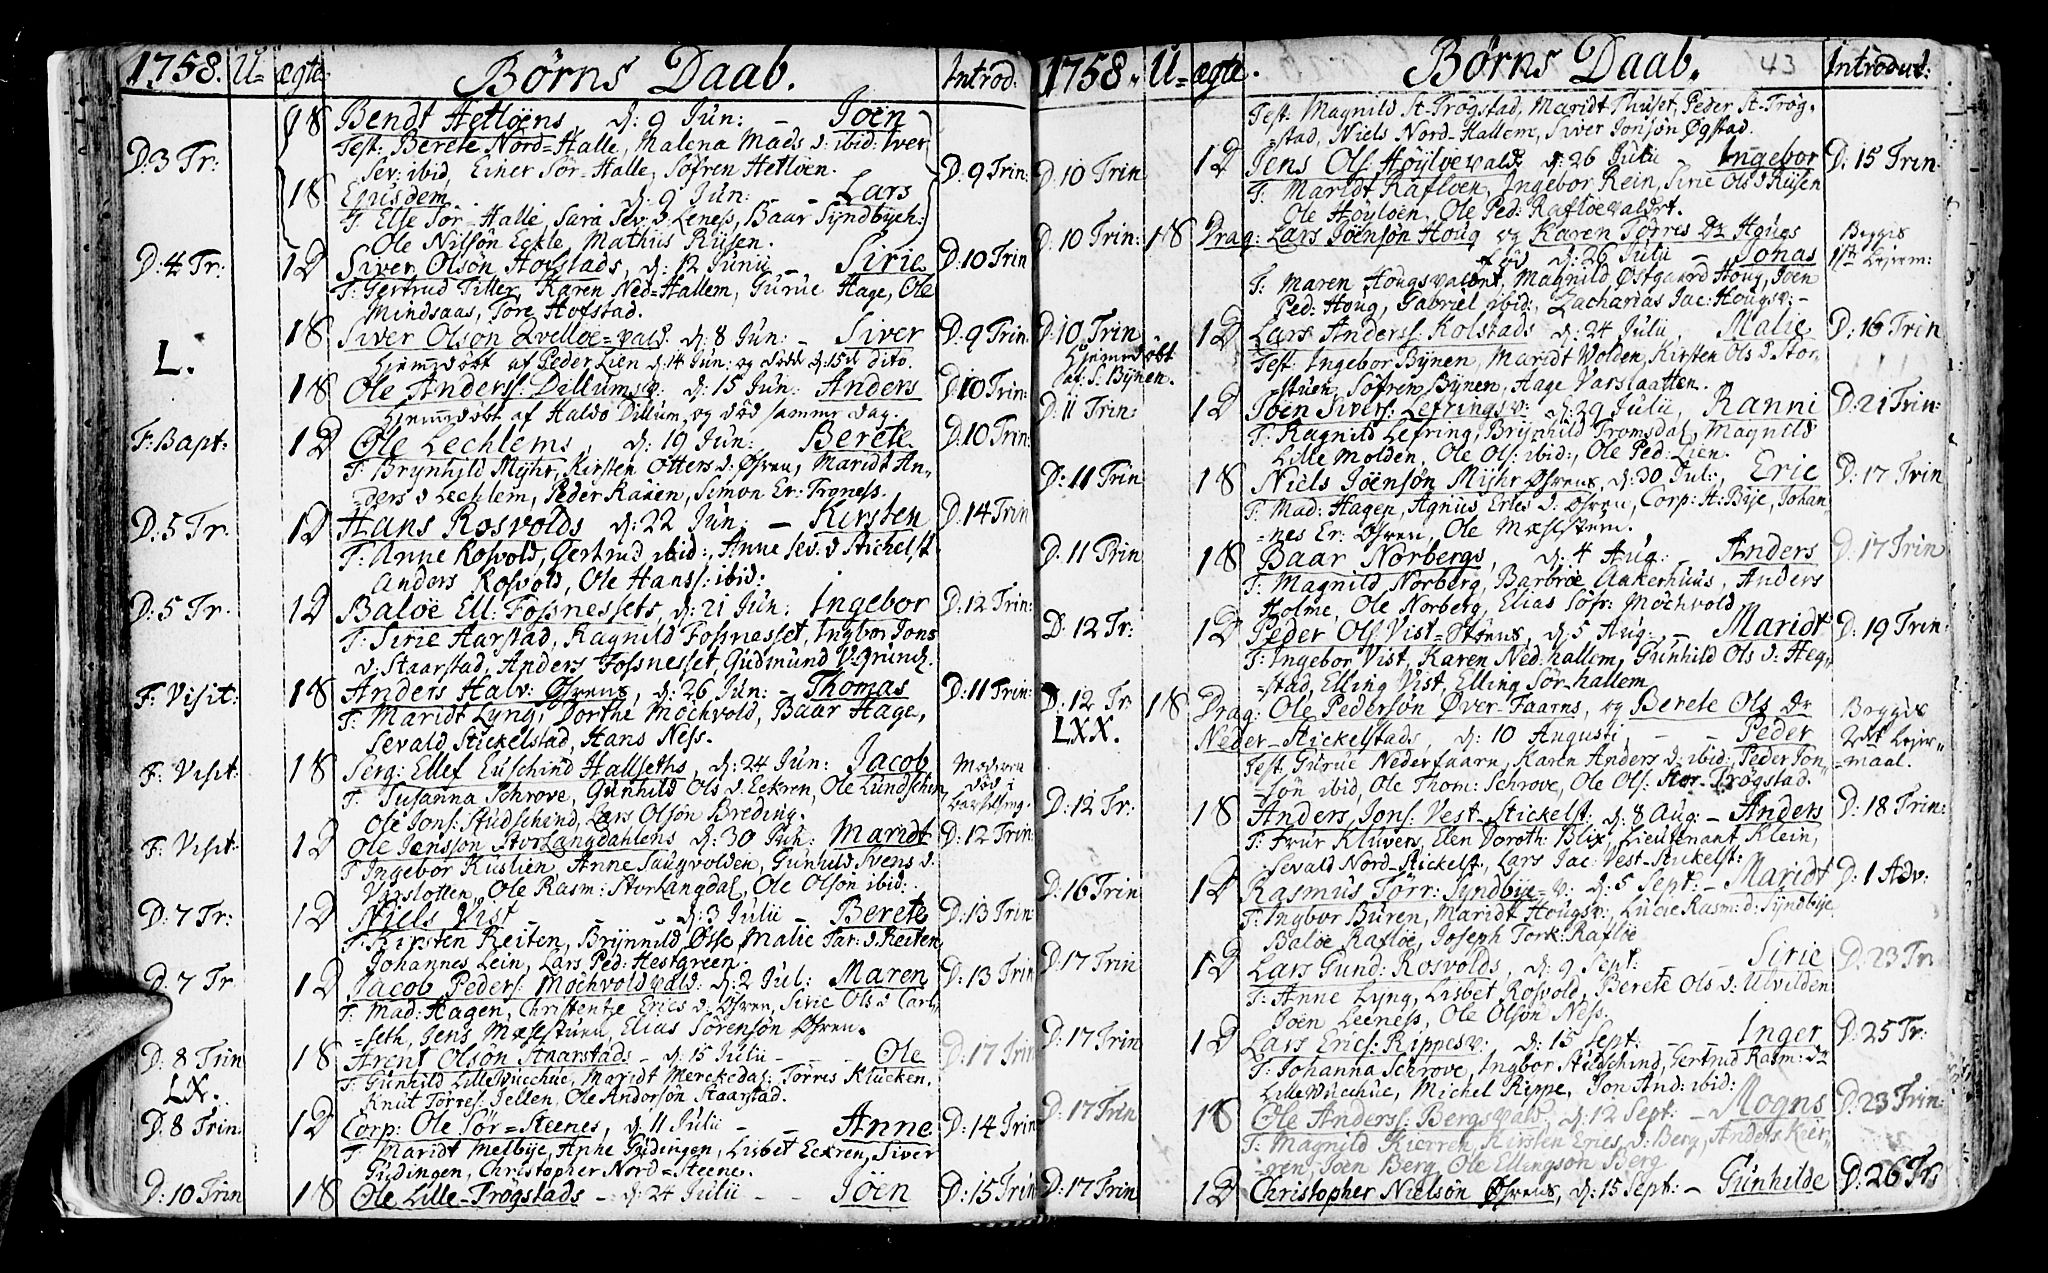 1758. U= ægte. Børns Daab. Introd:
1S Bendt Hetløens, d: 9 Jun: – Joen
Test: Berete Nord=Halle, Malena Mads d: ibid: Iver
D: 3 Tr: Sev: ibid, Einer Sør=Halle, Søfren Hetløen. D: 9 Trin:
1S Ejusdem. d: 9 Jun: – Lars
T: Else Sør=Halle, Sara Sev: d Leness, Baar Syndbyeh:
Ole Nilsøn Eckle, Mathus Rÿsen.
D: 4 Tr: 1D Siver Olsøn Hofstads, d: 12 Junii – Sirie D: 10 Trin
T: Gertrud Titter, Karen Ned=Hallem, Gurue Hage, Ole
Mindsaas, Tore Hofstad.
L. 1S Siver Olsøn Qvelloe=vald: d: 8 Jun: – Siver D: 9 Trin:
Hjemmedøbt af Peder Lien d: 14 Jun: og døde d: 15d dito.
1S Ole Anderss: Dillumsv: d: 15 Jun: Anders D: 10 Trin:
Hjemmedøbt af Haldo Dillum, og død samme dag.
F: Bapt: 1D Ole Lechlems, d: 19 Jun: Berete D: 10 Trin:
T: Brynhild Myhr, Kirsten Otters d: Øsren, Maridt An-
ders d Lechlem, Peder Raaen, Simon Er: Troness.
D: 5 Tr. 1D Hans Rosvolds d: 22 Jun: – Kirsten D: 14 Trin
T: Anne Rosvold, Gertrud ibid:, Anne Sev: d Stichelst.
Anders Rosvold, Ole Hanss: ibid:
D: 5 Tr. 1D Baløe Ell: Fossnessets, d: 21 Jun: Ingebor D: 12 Trin:
T: Sirie Aarstad, Ragnild Fossnesset, Ingbor Jons
d: Staarstad, Anders Fossnesset Gudmund V:Grund.
F: Visit: 1S Anders Halv: Øsrens, d: 26 Jun: – Thomas D: 11 Trin:
T: Maridt Lyng, Dorthe Møchvold, Baar Hage,
Sevald Stickelstad, Hans Ness.
F: Visit: 1S Serg: Ellef Euschind Hallseths, d: 24 Jun: Jacob Moderen
T: Susanna Schrove, Gunhild Ols d: Eckren, Ole Lundschin, død i
Ole Jons: Studschind, Lars Olsøn Breding. Barselsng.
F: Visit: 1D Ole Jensson StorLangdahlens d: 30 Jun: Maridt D: 12 Trin:
T Ingebor Kuslien, Anne Saugvolden, Gunhild Svens d:
Værslotten, Ole Rasm: StorLangdal, Ole Olsøn ibid:
D: 7 Tr: 1D Niels Vist – – d: 3 Julii – Berete D: 13 Trin:
T: Kirsten Reiten, Brynnild Øsse, Malie Tar: d: Reiten,
Johannes Lein, Lars Ped: Hestgreen.
D: 7 Tr 1D Jacob Peders: Møchvoldvald: d: 2 Jul: Maren D: 13 Trin
T: Mad: Hagen, Christentje Erics d: Øsren, Sirie Ols d Carl-
=seth, Jens Mæhlstuen, Elias Sørensøn Øsren.
D: 8 Trin 1S Arent Olsøn Staarstads – d: 15 Julii – – Ole D: 17 Trin
T: Gunhild LilleWucchue, Maridt Merckedal: Torres Klücken,
LX. Knut Torres: Jellen, Ole Andorsøn Staarstad.
D: 8 Trin. 1D Corp: Ole Sør=Steenes, d: 11 Julii – Anne D: 14 Trin
T: Maridt Melbye, Anne Gudingen, Lisbet Eckren, Siver
Gudingen, Christopher Nord=Steenes.
D: 10 Trin 1S Ole Lille-Trøgstads – d: 24 Julii – – Joen D: 15 Trin
1758. U= ægte. Børns Daab. 43 Introdut:
Test: Magnild St-Trøgstad, Maridt Thuset, Peder St-Trøg-
stad, Niels Nord-Hallem, Siver Jonsøn Øgstad.
D: 10 Trin 1D Jens Ols: Høylvevald: d: 26 Julii – Ingebor D: 15 Trin
T: Maridt Rafloen, Ingebor Rein, Sirie Ols d Riisen
Ole Høyloen, Ole Ped: Rafloevaldet.
D: 10 Trin: 1S Drag: Lars Joensøn Houg og Karen Torres Dr Hgues Begges
d: 26 Julii – Jonas 1ste Lejerm:
T: Maren Hougsvaldet, Magnild Østgaard Houg, Joen
Ped: Houg, Gabriel ibid:, Zacharias Jac: Hougsv: –
D: 10 Trin 1D Lars Anderss: Kolstads d: 24 Julii Malie D: 16 Trin
Hjemmedøbt Test: Ingebor Bynen, Maridt Wolden, Kirsten Ols d Stor-
af S. Bynen. stuen, Søfren Bynen, Hage Varslaatten.
D: 11 Trin: 1D Joen Sivers: Lefringsv: d: 29 Julii, Ranni D: 21 Trin:
T: Ragnild Lefring, Brynhild Tromsdal, Magnild
Lille Molden, Ole Ols: ibid:, Ole Ped: Lien.
D: 11 Trin 1S Niels Joensøn Myhr Øsrens, d: 30 Jul:, Eric D: 17 Trin
T: Mad: Hagen, Agnius Erics d: Øsren, Corp: H: Bye, Johan
=nes Er: Øsren, Ole Mæhlstern.
D: 11 Prin 1S Baar Norbergs, d: 4 Aug: – Anders D: 17 Trin
T: Magnild Norberg, Barbroe Aakerhuus, Anders
Holme, Ole Norberg, Elias Søfr: Møchvold
D: 12 Tr: 1D Peder Ols Vist=Størens, d: 5 Aug: – Maridt D: 19 Trin:
T: Ingebor Vist, Karen Ned:hallem, Gunhild Ols d: Heg-
=stad, Elling Vist, Elling Sør-hallem
D: 12 Tr 1S Drag: Ole Pedersøn Øver-Faarns, og Berete Ols Dr Begges
LXX. Neder-Stickelstads, d: 10 Augusti, – – Peder 2det Lejer=
Test: Gurue Nederfaarn, Karen Anders d: ibid: Peder Jon- =maal.
søn ibid, Ole Thom: Schrove, Ole Ols: Stor-Trøgstad.
D: 12 Tr: 1S Anders Jons: Vest-Stickelst: d: 8 Aug: – Anders D: 18 Trin:
T: Frur Klüvers, Elen Doroth: Blix, Lieutenant Klein,
Sevald Nord-Stickelst, Lars Jac: Vest-Stickelst:
D: 16 Trin 1D Rasmus Torr: Syndbye=v: d: 5 Sept: – Maridt D: 1 Adv:
T: Ingbor Buren, Maridt Hougsv:, Lucie Rasm: d: Syndbye,
Baløe Rafloe, Joseph Tork: Rafloe
D: 17 Trin 1D Lars Gund: Rosvolds, d: 9 Sept: – Sirie D: 23 Tr.
T: Anne Lyng, Lisbet Rosvold, Berete Ols d: Ulvilden
Joen Leeness, Ole Olsøn Ness.
D: 17 Trin 1D Lars Erics: Rippesv: d: 15 Sept: – Inger D: 25 Tr:
T: Johanna Schrove, Ingbor Studschind, Gertrud Rasm: dr
LilleWucchue, Michel Rippe, Jon And: ibid:
D: 17 Trin 1S Ole Anderss: Bergsvald, d: 12 Sept: – Mogns D: 23 Trin:
T: Magnild Kierren, Kirsten Erics d: Berg, Anders Kier-
=ren, Joen Berg, Ole Ellingsøn Berg
D: 17 Trin 1D Christopher Nielsøn Øsrens, d: 15 Sept: – Gunhilde D: 26 Tr